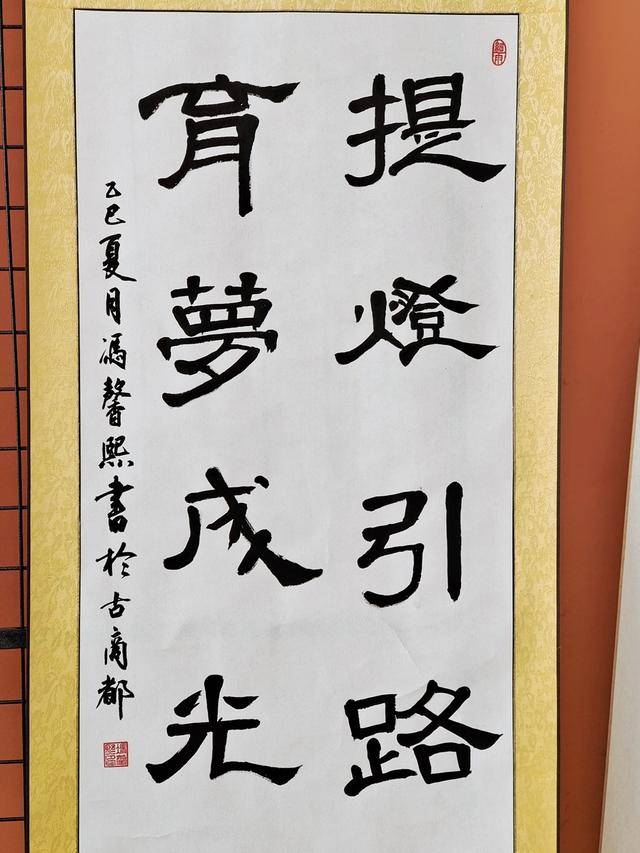 提燈引路
育夢成光
乙巳夏月馮馨熙書於古商都